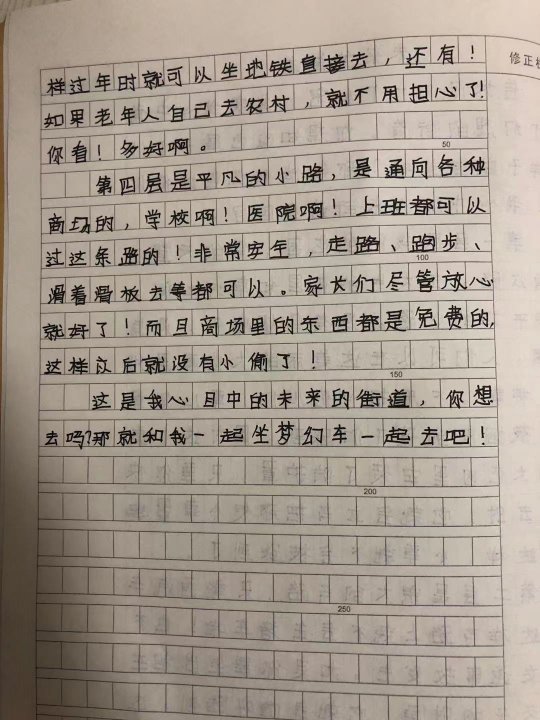 样过年时就可以坐地铁直接去，还有！
如果老年人自己去农村，就不用担心了！
你看！多好啊。
50
第四层是平凡的小路，是通向各种
商场的，学校啊！医院啊！上班都可以
过这条路的！非常安全，走路、跑步、
100
滑着滑板去等都可以。家长们尽管放心
就好了！而且商场里的东西都是免费的，
这样以后就没有小偷了！
150
这是我心目中的未来的街道，你想
去吗？那就和我一起坐梦幻车一起去吧！
200
250
修正栏